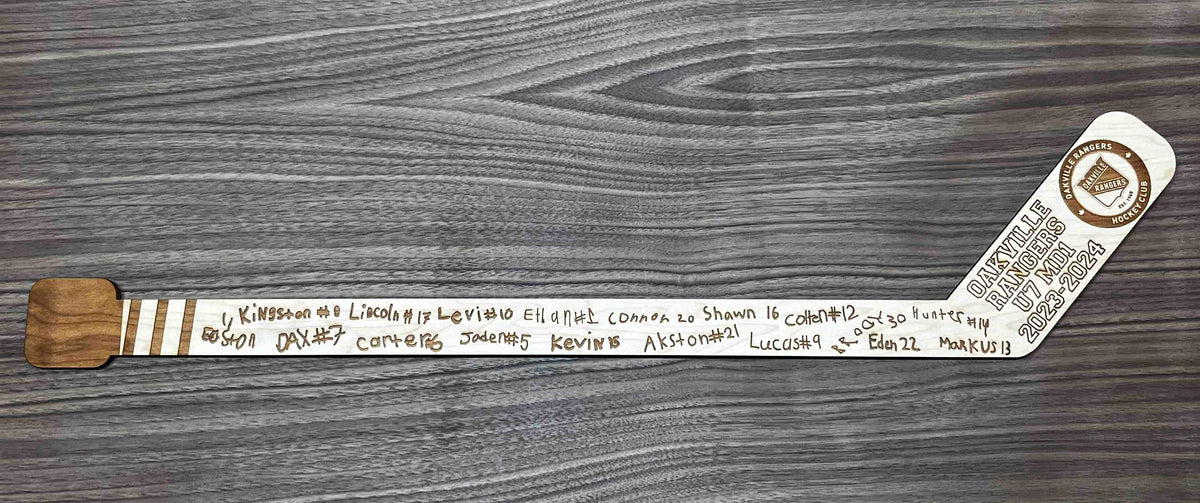 Kingston #8 Lincoln #17 Levi #10 Ethan #1 Connor 20 Shawn 16 Colten #12 30 Hunter #14
Easton DAX #7 carter 6 Jaden #5 Kevin 15 Akston #21 Lucas #9 Eden 22 MarKUS 13
OAKVILLE
RANGERS
U7 MD1
2023-2024
OAKVILLE RANGERS
OAKVILLE
RANGERS
EST. 1966
HOCKEY CLUB